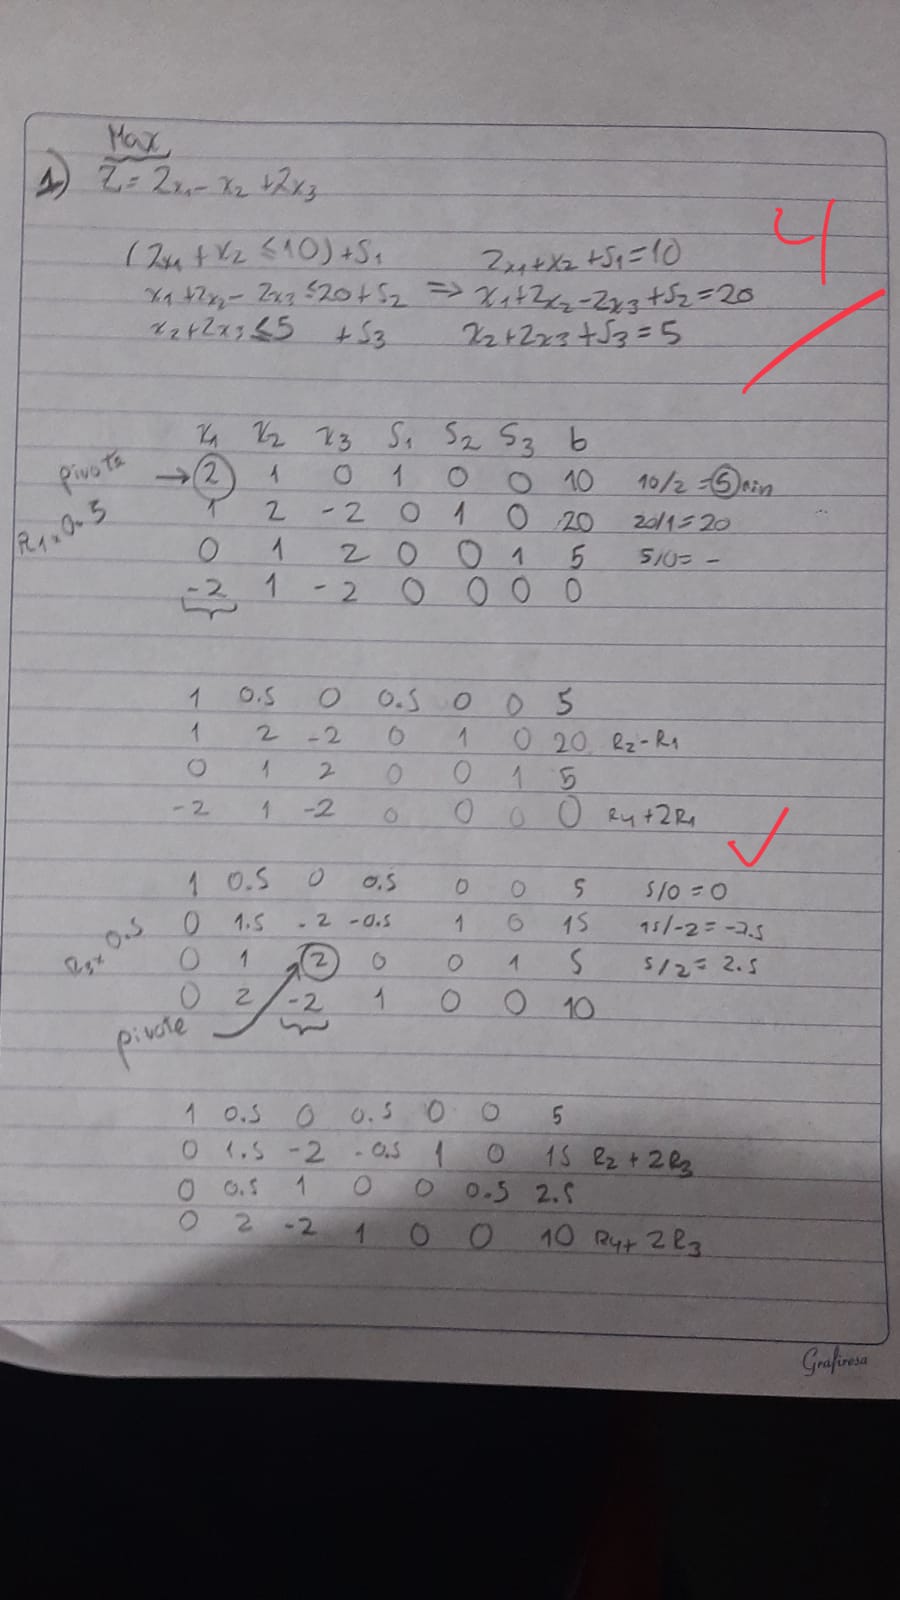 Max
1) Z = 2x1 - x2 + 2x3
4
(2x1 + x2 ≤ 10) + S1 2x1 + x2 + S1 = 10
x1 + 2x2 - 2x3 ≤ 20 + S2 ⇒ x1 + 2x2 - 2x3 + S2 = 20
x2 + 2x3 ≤ 5 + S3 x2 + 2x3 + S3 = 5
x1 x2 x3 S1 S2 S3 b
pivote → 2 1 0 1 0 0 10 10/2 = 5 min
R1 x 0.5 1 2 -2 0 1 0 20 20/1 = 20
0 1 2 0 0 1 5 5/0 = -
-2 1 -2 0 0 0 0
1 0.5 0 0.5 0 0 5
1 2 -2 0 1 0 20 R2 - R1
0 1 2 0 0 1 5
-2 1 -2 0 0 0 0 R4 + 2R1
✓
1 0.5 0 0.5 0 0 5 5/0 = 0
0 1.5 -2 -0.5 1 0 15 15/-2 = -7.5
R3 x 0.5 0 1 2 0 0 1 5 5/2 = 2.5
0 2 -2 1 0 0 10
pivote
1 0.5 0 0.5 0 0 5
0 1.5 -2 -0.5 1 0 15 R2 + 2R3
0 0.5 1 0 0 0.5 2.5
0 2 -2 1 0 0 10 R4 + 2R3
Grafiresa